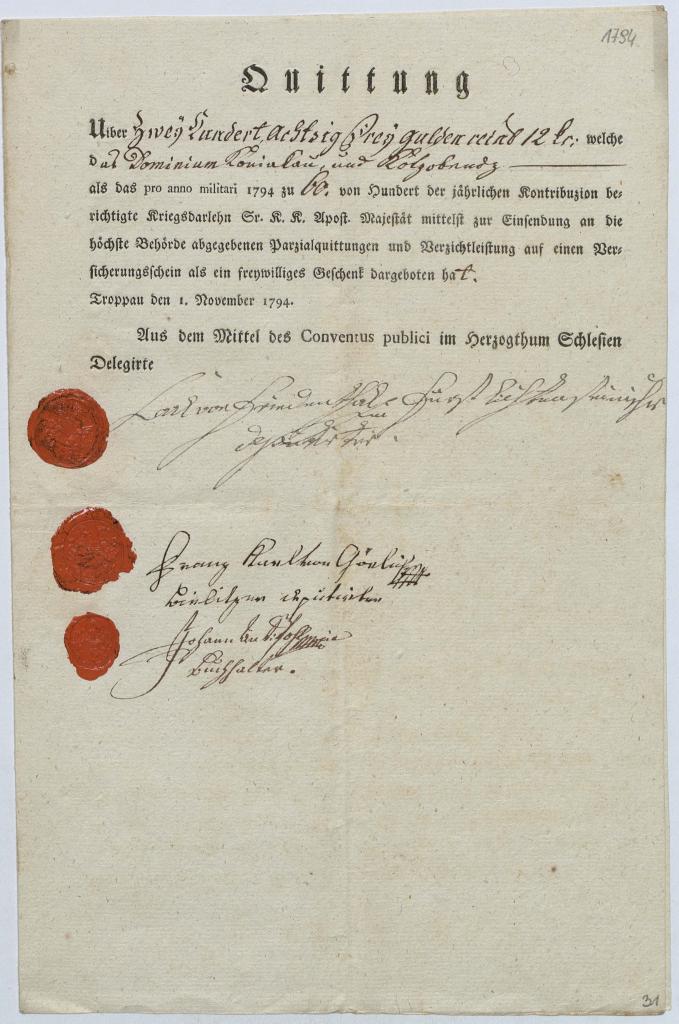 1794
Quittung
Uiber Zwey Hundert, Achtzig Drey Gulden 12 kr: welche
das Dominium Koniakau, und Kotzobendz
als das pro anno militari 1794 zu 60. von Hundert der jährlichen Kontribuzion be-
richtigte Kriegsdarlehn Sr. K. K. Apost. Majestät mittelst zur Einsendung an die
höchste Behörde abgegebenen Parzialquittungen und Verzichtleistung auf einen Ver-
sicherungsschein als ein freywilliges Geschenk dargeboten hat.
Troppau den 1. November 1794.
Aus dem Mittel des Conventus publici im Herzogthum Schlesien
Delegirte
Carl von Friedenthal Fürst Lichtensteinischer
deputirter.
Franz Karl von Görlich
Bielitzer deputirter
Johann
Buchhalter.
31